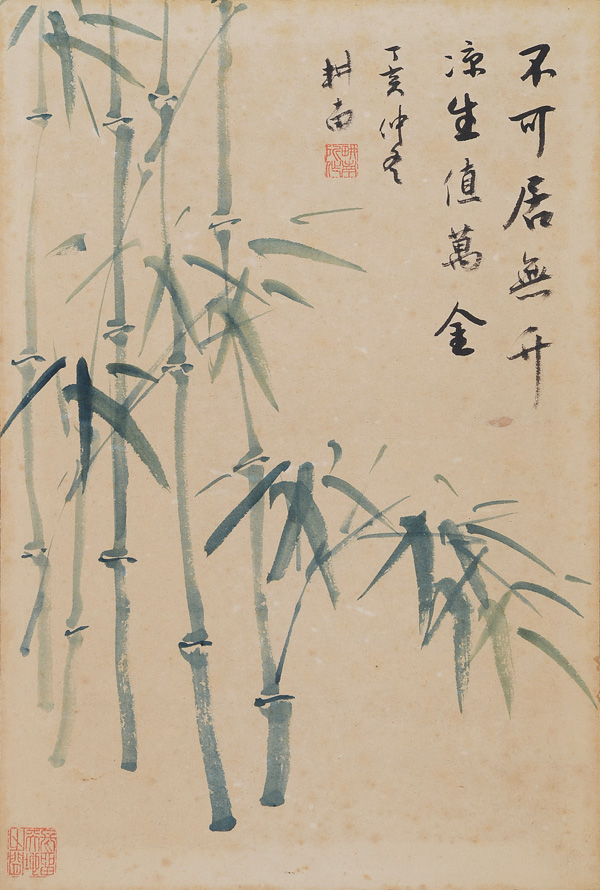 不可居無竹
凉生值萬金
丁亥仲冬
耕南